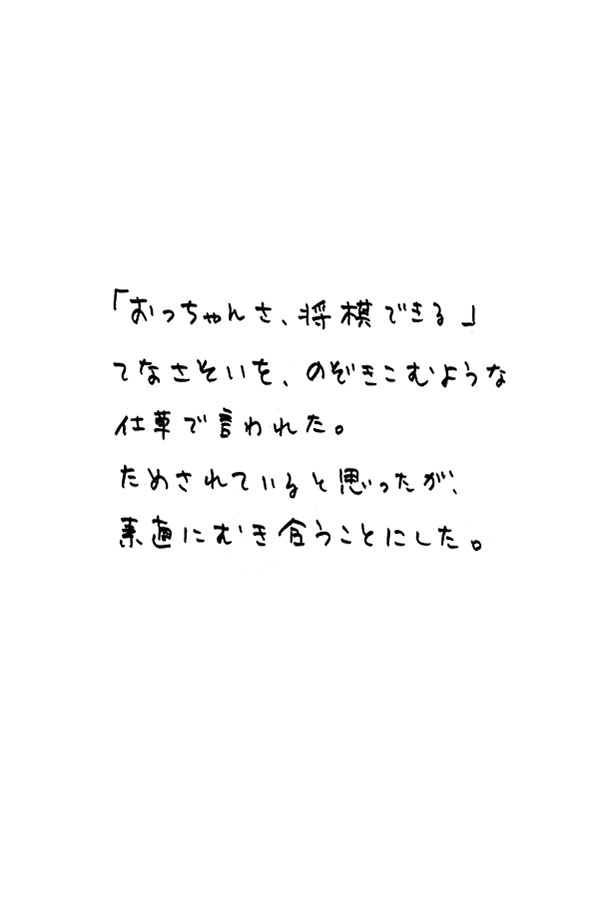 「おっちゃんさ、将棋できる」
てなさそいを、のぞきこむような
仕草で言われた。
ためされていると思ったが、
素適にむき合うことにした。